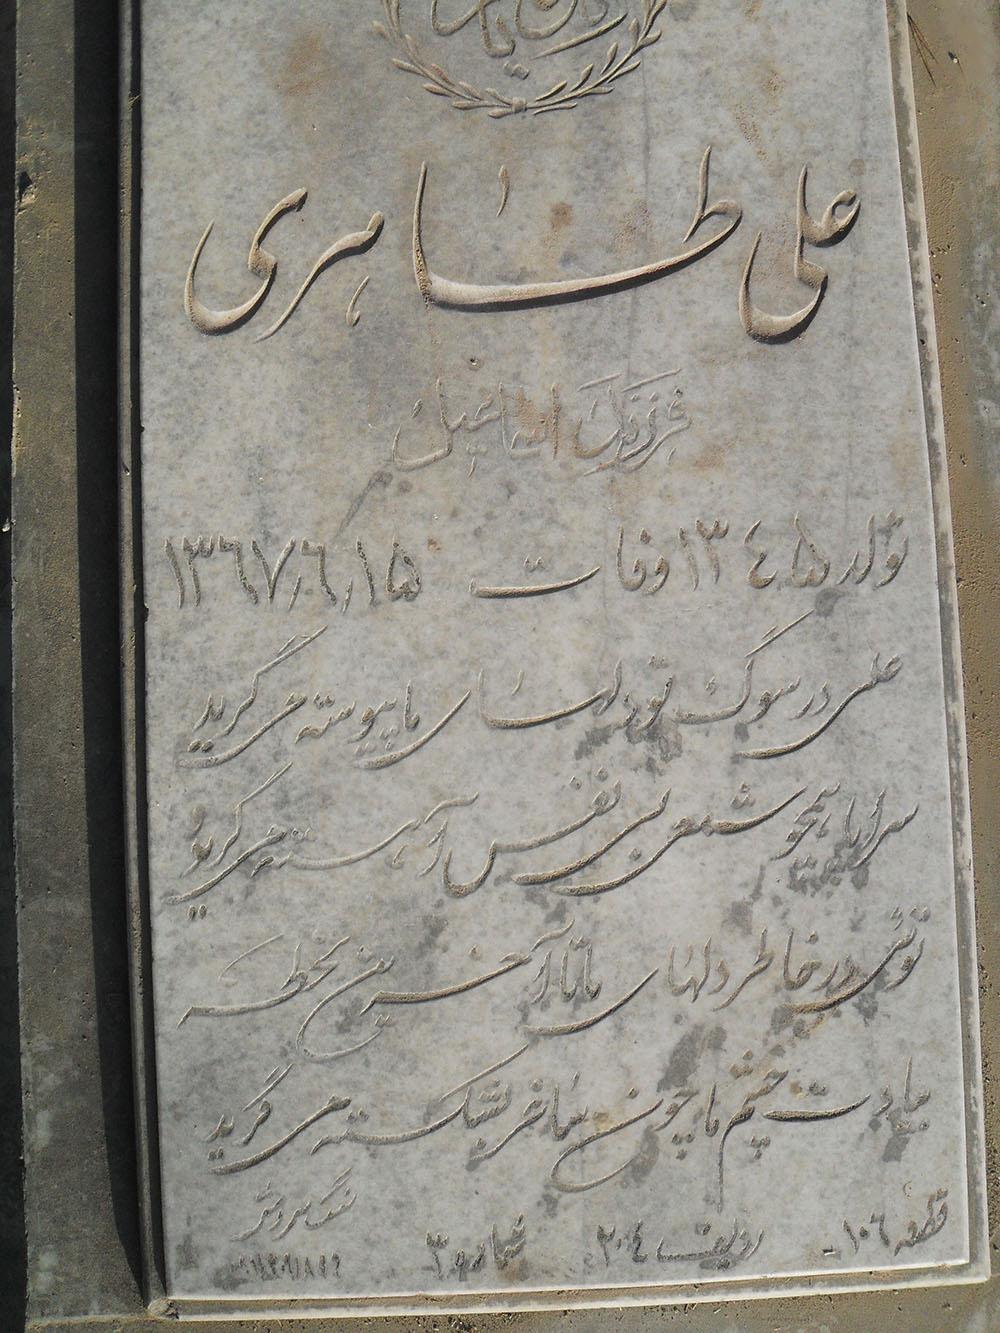 علی طاهری
فرزند اسماعیل
تولد ۱۳۴۵ وفات ۱۳۶۷/۶/۱۵
علی در سوگ تو دلهای ما پیوسته می گرید
سراپا همچو شمعی بی نفس آهسته می گرید
توئی در خاطر دلهای ما تا آخرین لحظه
بیادت چشم ما چون ساغر بشکسته می گرید
قطعه ۱۰۶ - ردیف ۲۰۴ شماره ۳